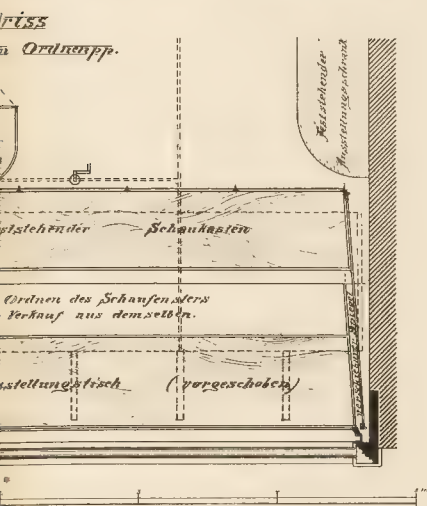 riss
n Ordnenpp.
Feststehender
Ausstellungsschrank
ststehender Schaukasten
Ordnen des Schaufensters
Verkauf aus demselben.
sstellungstisch (vorgeschoben)
Spiegel